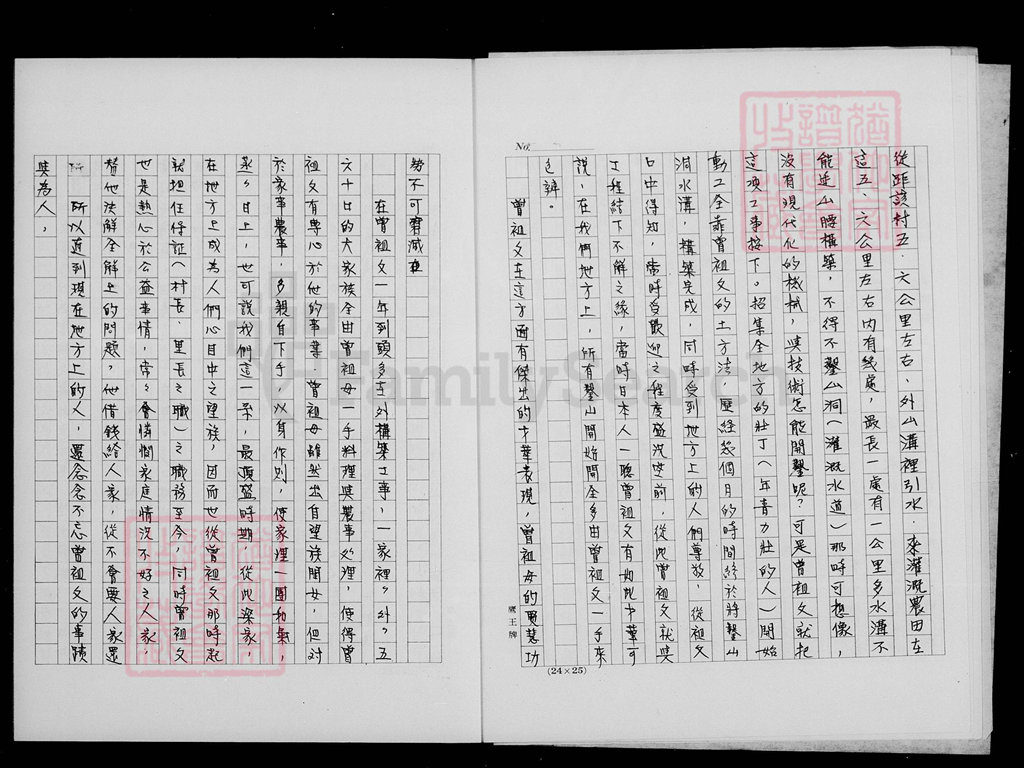 No.
從距該村五．六公里左右、外山溝裡引水．來灌溉農田在
這五、六公里左右內有幾處，最長一處有一公里多水溝不
能延山腰構築，不得不鑿山洞（灌溉水道）那時可想像，
沒有現代化的機械，與技術怎能開鑿呢？可是曾祖父就把
這項工事接下。招集全地方的壯丁（年青力壯的人）開始
動工全靠曾祖父的土方法，歷經幾個月的時間終於將鑿山
洞水溝，構築完成，同時受到地方上的人們尊敬，從祖父
口中得知，當時受歡迎之程度盛況空前，從此曾祖父就與
工程結下不解之緣，當時日本人一聽曾祖父有如此才華可
說，在我們地方上，所有鑿山開始開全多由曾祖父一手來
包辦。
曾祖父在這方面有傑出的才華表現，曾祖母的賢慧功
鷹王牌
(24×25)
勞不可磨滅
在曾祖父一年到頭多在外構築工事，一家裡，外，五
六十口的大家族全由曾祖母一手料理與農事処理，使得曾
祖父有專心於他的事業 曾祖母雖然出自望族閨女，但对
於家事農事，多親自下手，以身作則，使家理一團和氣，
蒸々日上，也可說我們這一系，最頂盛時期，從此梁家，
在地方上成為人們心目中之望族，因而也從曾祖父那時起
就担任保証（村長．里長之職）之職務至今，同時曾祖父
也是熱心於公益事情，常々會憐憫家庭情況不好之人家，
替他決解全解上的問題，他借錢給人家，從不會要人家還
所以近到現在地方上的人，還念念不忘曾祖父的事蹟
與為人，
FamilySearch